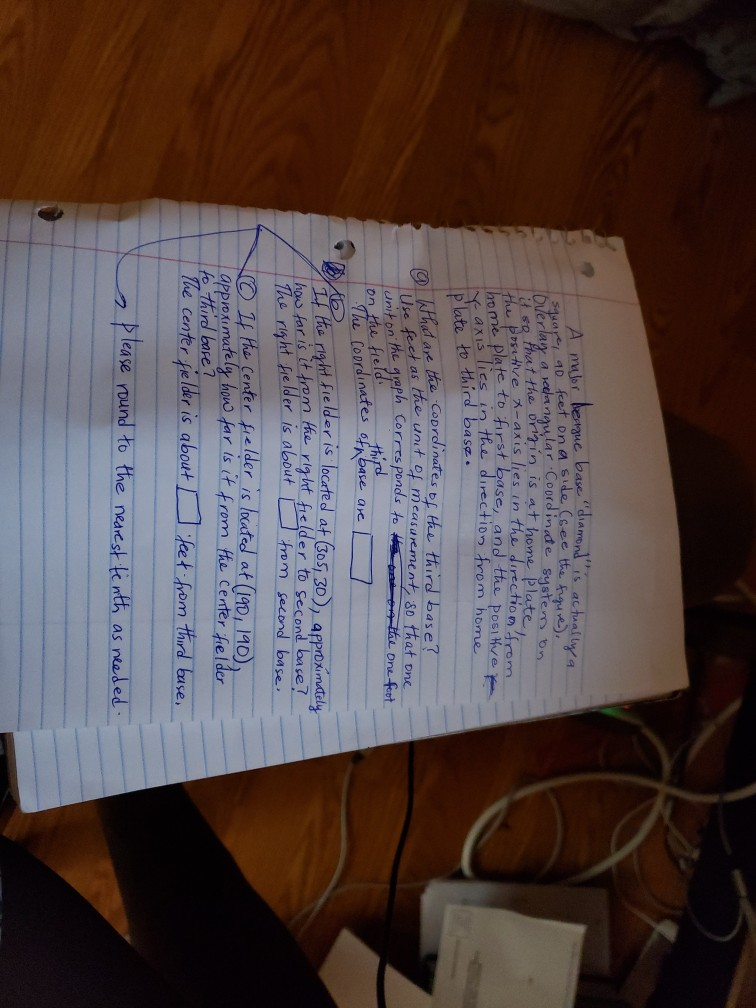 A major league base "diamond" is actually a
square, 90 feet on a side (see the figure).
Overlay a rectangular coordinate system on
it so that the origin is at home plate,
the positive x-axis lies in the direction from
home plate to first base, and the positive
Y-axis lies in the direction from home
plate to third base.
(a) What are the coordinates of the third base?
Use feet as the unit of measurement, so that one
unit on the graph corresponds to one foot
on the field.
The coordinates of third base are
(b) If the right fielder is located at (305,30), approximately
how far is it from the right fielder to second base?
The right fielder is about from second base.
(c) If the center fielder is located at (190, 190),
approximately how far is it from the center fielder
to third base?
The center fielder is about feet from third base.
please round to the nearest tenth as needed.